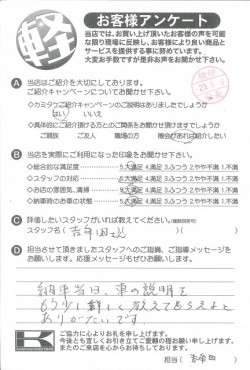 軽
お客様アンケート
当店では、お買い上げ頂いたお客様の声を可能
な限り現場に反映し、お客様により良い商品と
サービスを提供する事に努めています。
大変お手数ですが是非お声をお聞かせ下さい。
A 当店はご紹介を大切にしております。
ご紹介キャンペーンについてお聞かせ下さい。
◇カミタケご紹介キャンペーンのご説明はありましたでしょうか
はい いいえ
◇具体的にご紹介頂ける方とのご関係をお聞かせ頂けますでしょうか
ご親族 ご友人 職場の方 機会があれば紹介したい
B 当店を実際にご利用になった印象をお聞かせ下さい。
◇総合的な満足度 5.大満足 4.満足 3.ふつう 2.やや不満 1.不満
◇スタッフの対応 5.大満足 4.満足 3.ふつう 2.やや不満 1.不満
◇お店の雰囲気、清掃 5.大満足 4.満足 3.ふつう 2.やや不満 1.不満
◇納車時のお車の状態 5.大満足 4.満足 3.ふつう 2.やや不満 1.不満
C 評価したいスタッフがいれば教えてください。(複数回答可)
スタッフ名( 吉年田さん )
D 担当させて頂きましたスタッフへのご指摘、ご指導メッセージを
お願いします。応援メッセージもぜひお願いします。
納車当日、車の説明を
もう少し詳しく教えてもらえると
ありがたいです
K
ご協力に心よりお礼を申し上げます。
今後とも宜しくお引き立てご愛顧の程お願い申し上げます。
またのご来店を心からお待ちしております。
担当(